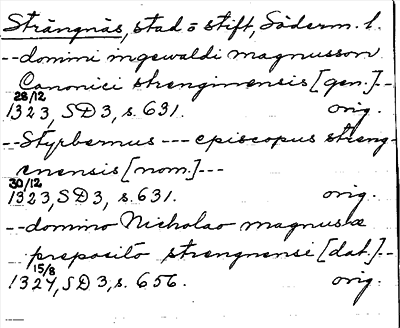 Strängnäs, stad o stift, Söderm. l.
--domini ingewaldi magnusson
Canonici strenginensis [gen.]--
28/12
1323, SD 3, s. 631. orig.
--Styrbernus --- episcopus streng-
enensis [nom.]---
30/12
1323, SD 3, s. 631. orig.
--domino Nicholao magnus æ
preposito strengnensi [dat.]--
15/8
1324, SD 3, s. 656. orig.